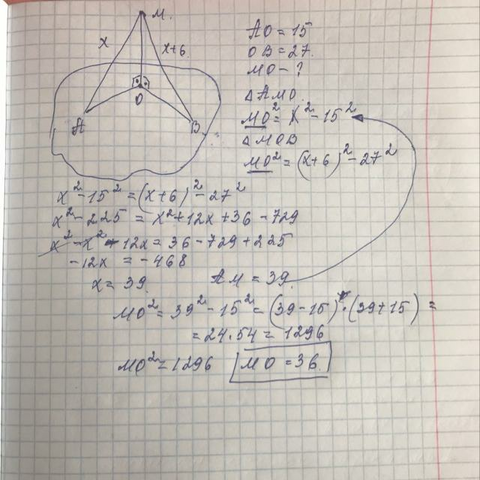 M.
x
x+6
O
A
B
AO = 15
OB = 27.
MO - ?
△ AMO.
MO² = x² - 15²
△ MOB
MO² = (x+6)² - 27²
x² - 15² = (x+6)² - 27²
x² - 225 = x² + 12x + 36 - 729
x² - x² - 12x = 36 - 729 + 225
-12x = -468
x = 39. AM = 39.
MO² = 39² - 15² = (39-15) · (39+15) =
= 24 · 54 = 1296
MO² = 1296 MO = 36.